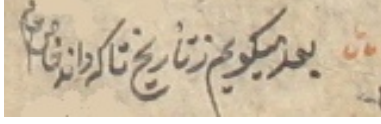 بعد میگویم ز تاریخ تا که داند خاص و عام